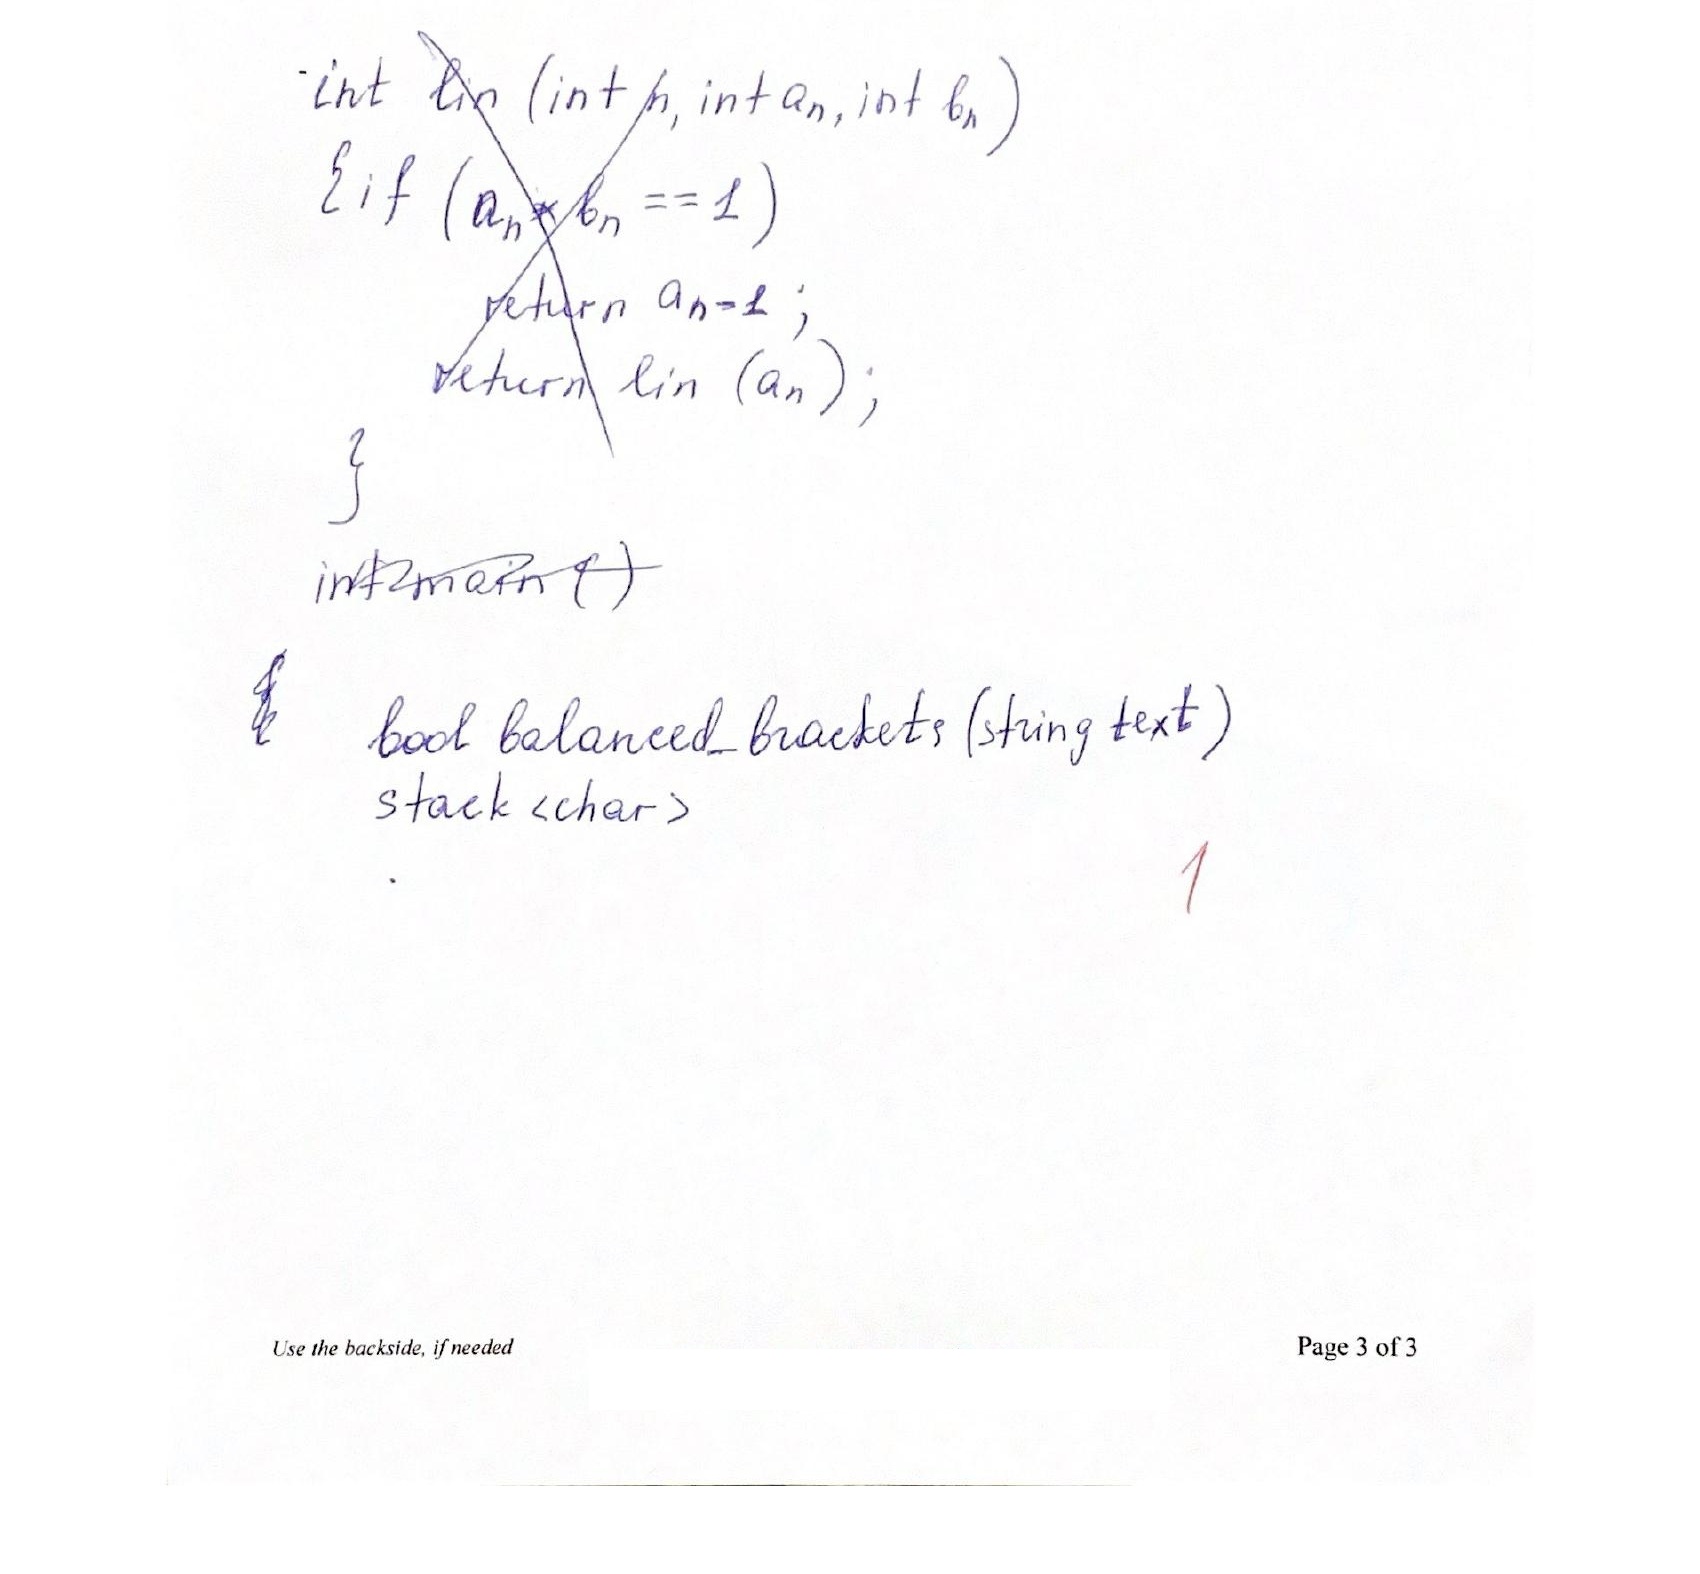 int lin (int n, int an, int bn)
{if (an * bn == 1)
return an=1;
return lin (an);
}
int main ()
{
bool balanced_brackets (string text)
stack <char>
1
Use the backside, if needed
Page 3 of 3